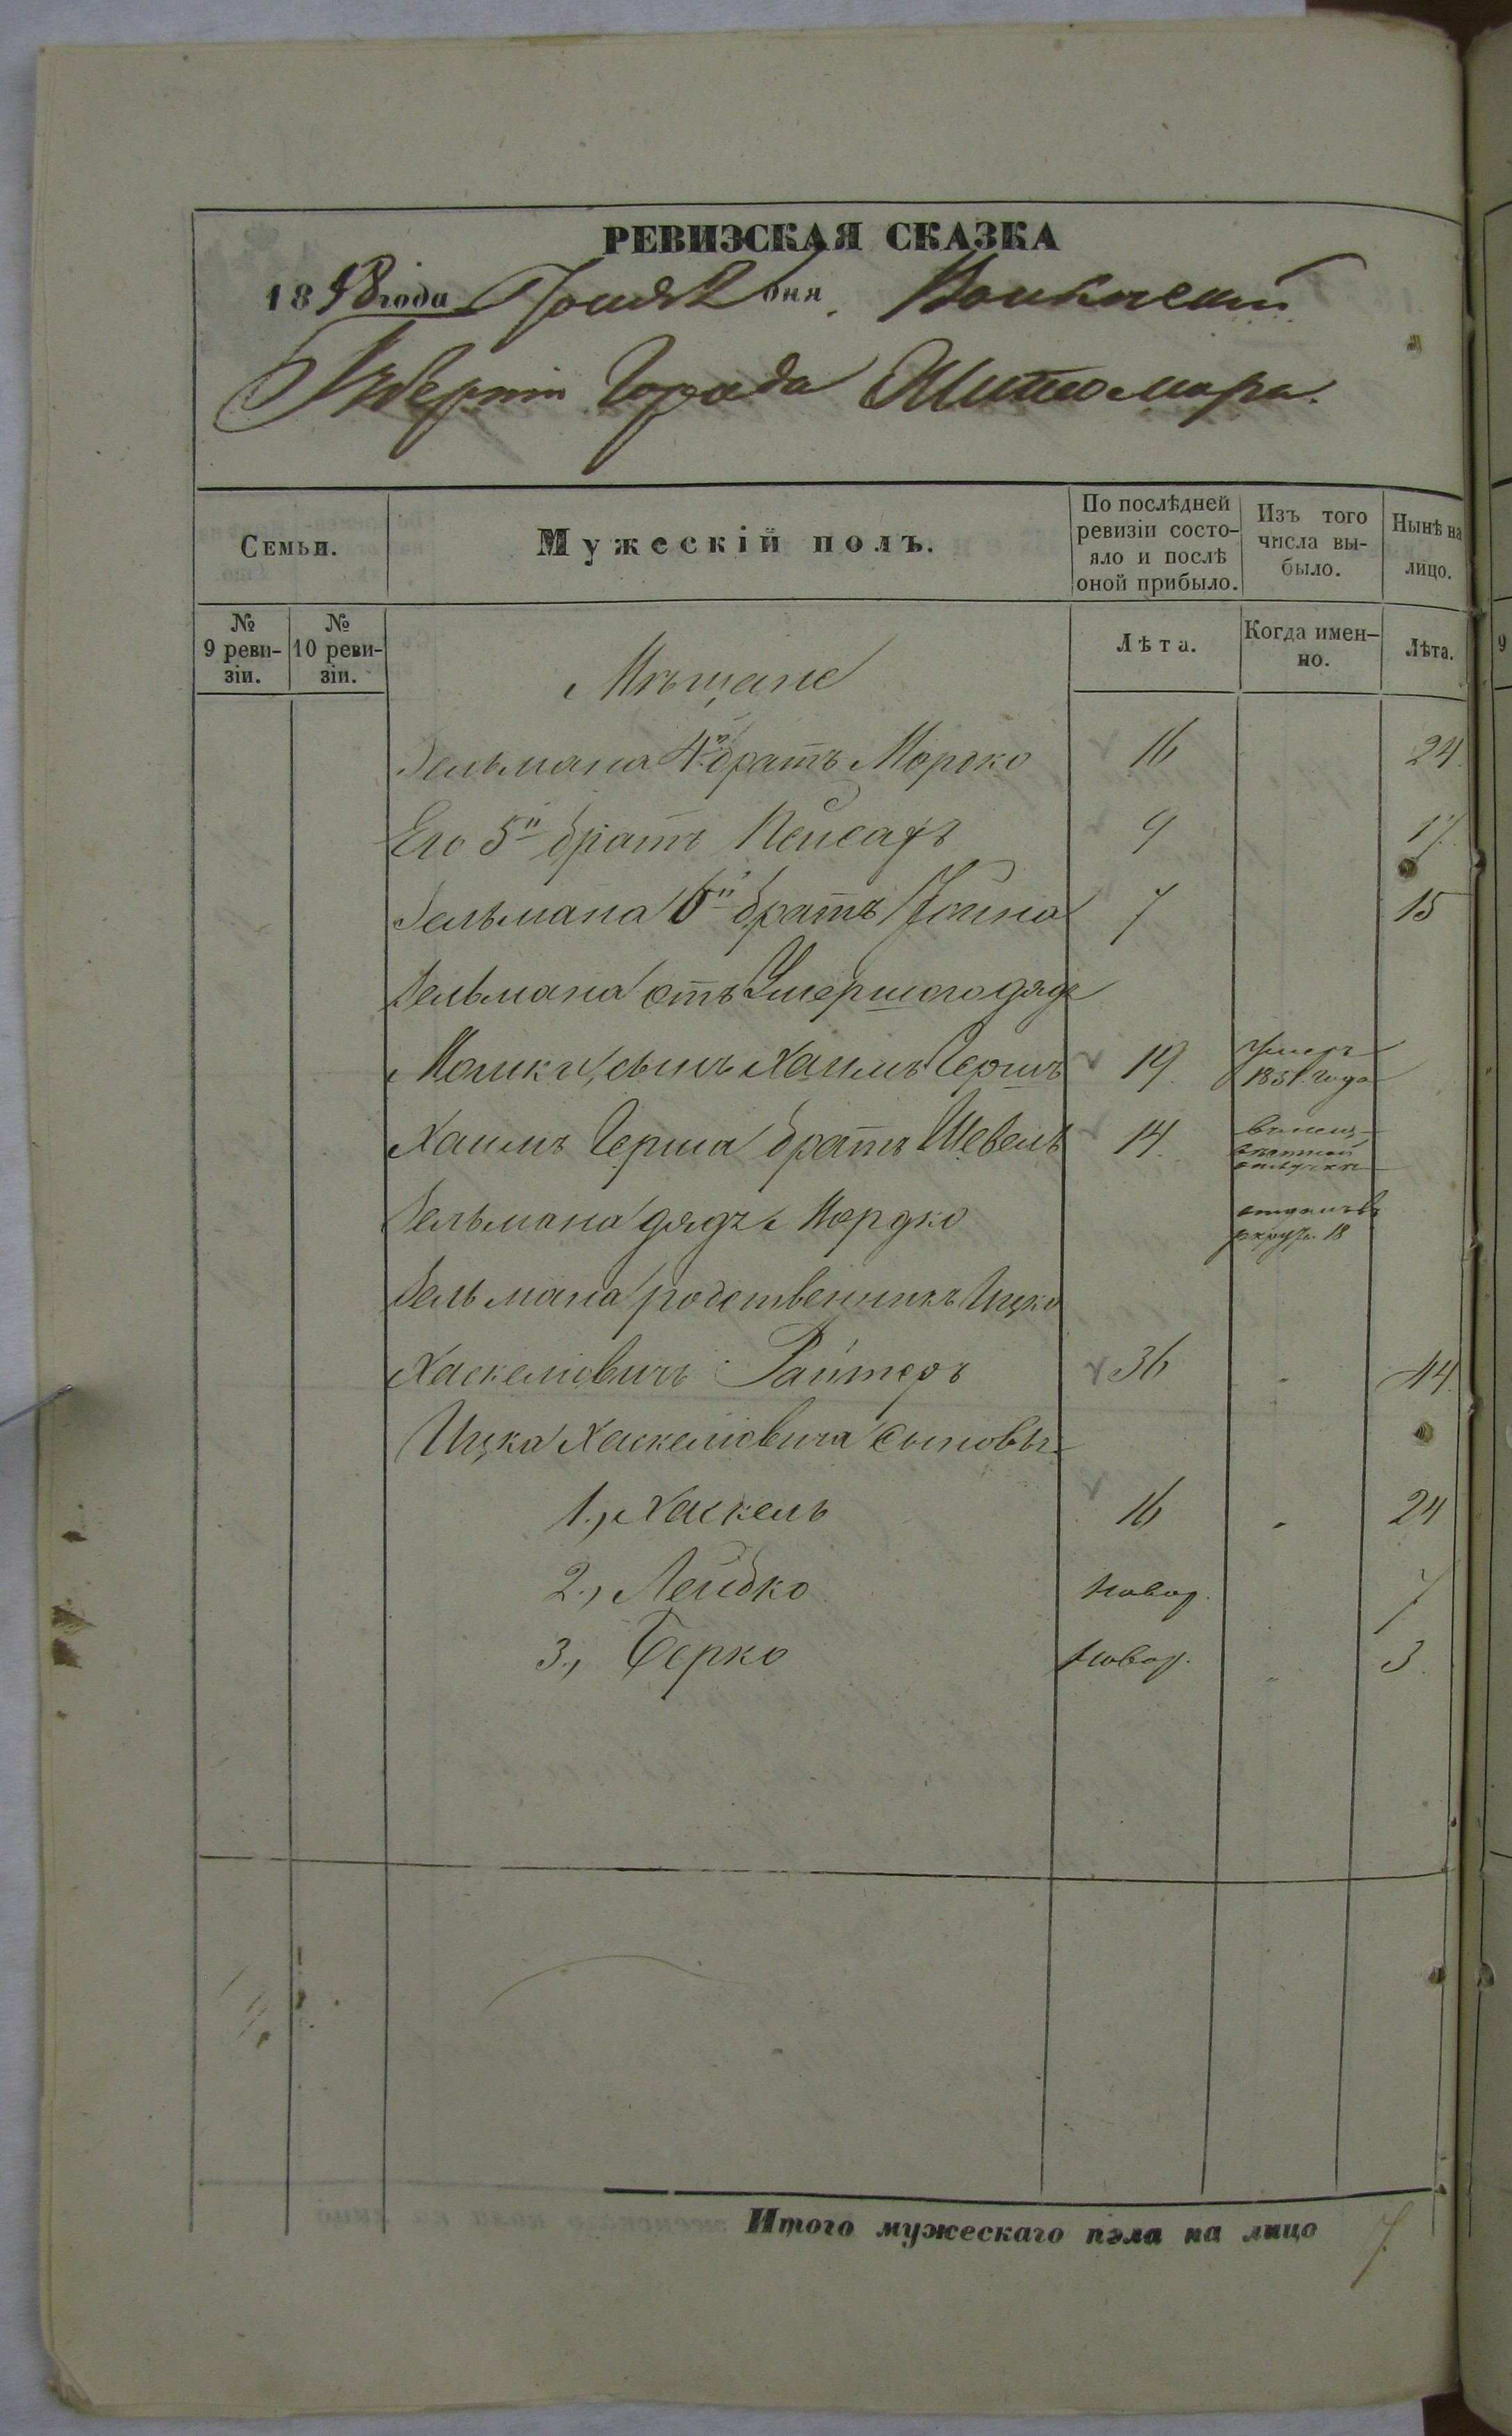 РЕВИЗСКАЯ СКАЗКА
1858 года Іюня 2 дня. Волынской
Губерніи Города Житомира.
Семьи.
Мужескій полъ.
По послѣдней ревизіи состояло и послѣ оной прибыло.
Изъ того числа выбыло.
Нынѣ на лицо.
№ 9 ревизіи.
№ 10 ревизіи.
Лѣта.
Когда именно.
Лѣта.
Мѣщане
Зельмана 4й братъ Мордко 16 24.
Его 5й братъ Пейсахъ 9 17.
Зельмана 6й братъ Іойна 7 15
Зельмана отъ Умершого дяди
Мошки, сынъ Хаимъ Гершъ 19. умеръ 1851. года
Хаимъ Герша братъ Шевель 14.
Зельмана дядя Мордко отданъ въ рекруты 18
Зельмана родственникъ Ицко
Хаскелiовичъ Райтеръ 36 44.
Ицка Хаскелiовича сыновья
1., Хаскель 16 24
2., Лейбко новор. 7
3., Берко новор. 3.
Итого мужескаго пола на лицо 7.